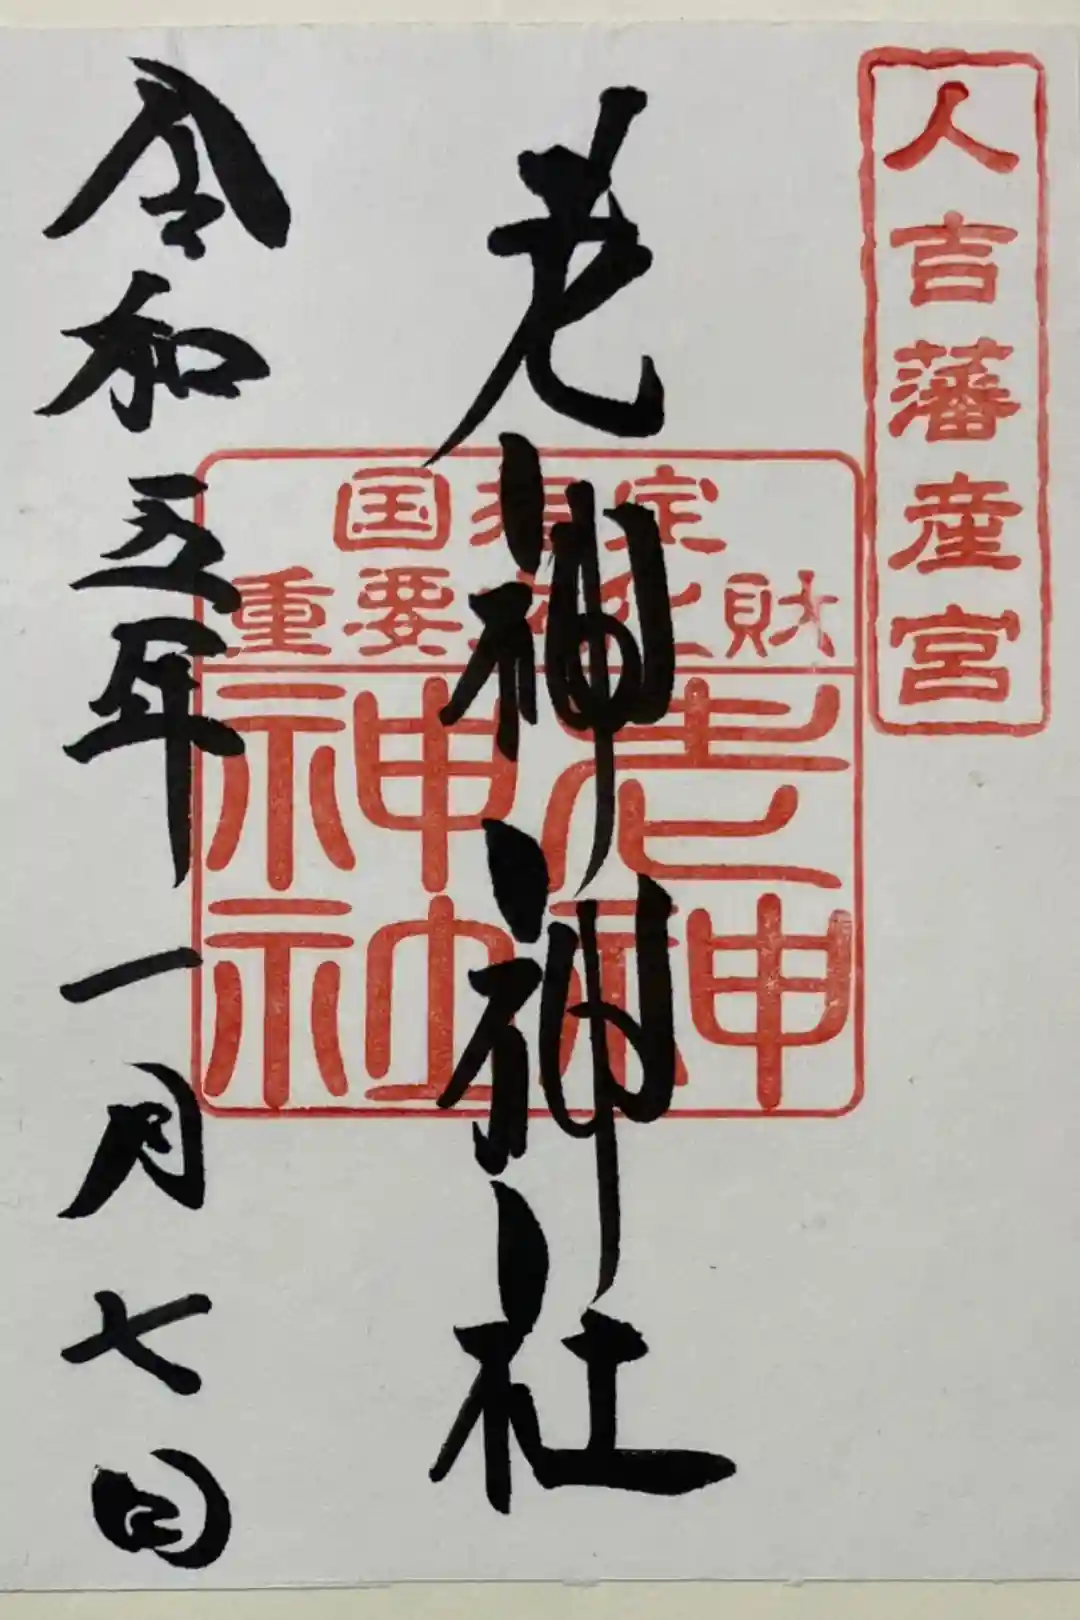 人吉藩産宮
老神神社
国指定
重要文化財
老神
神社
令和五年一月七日